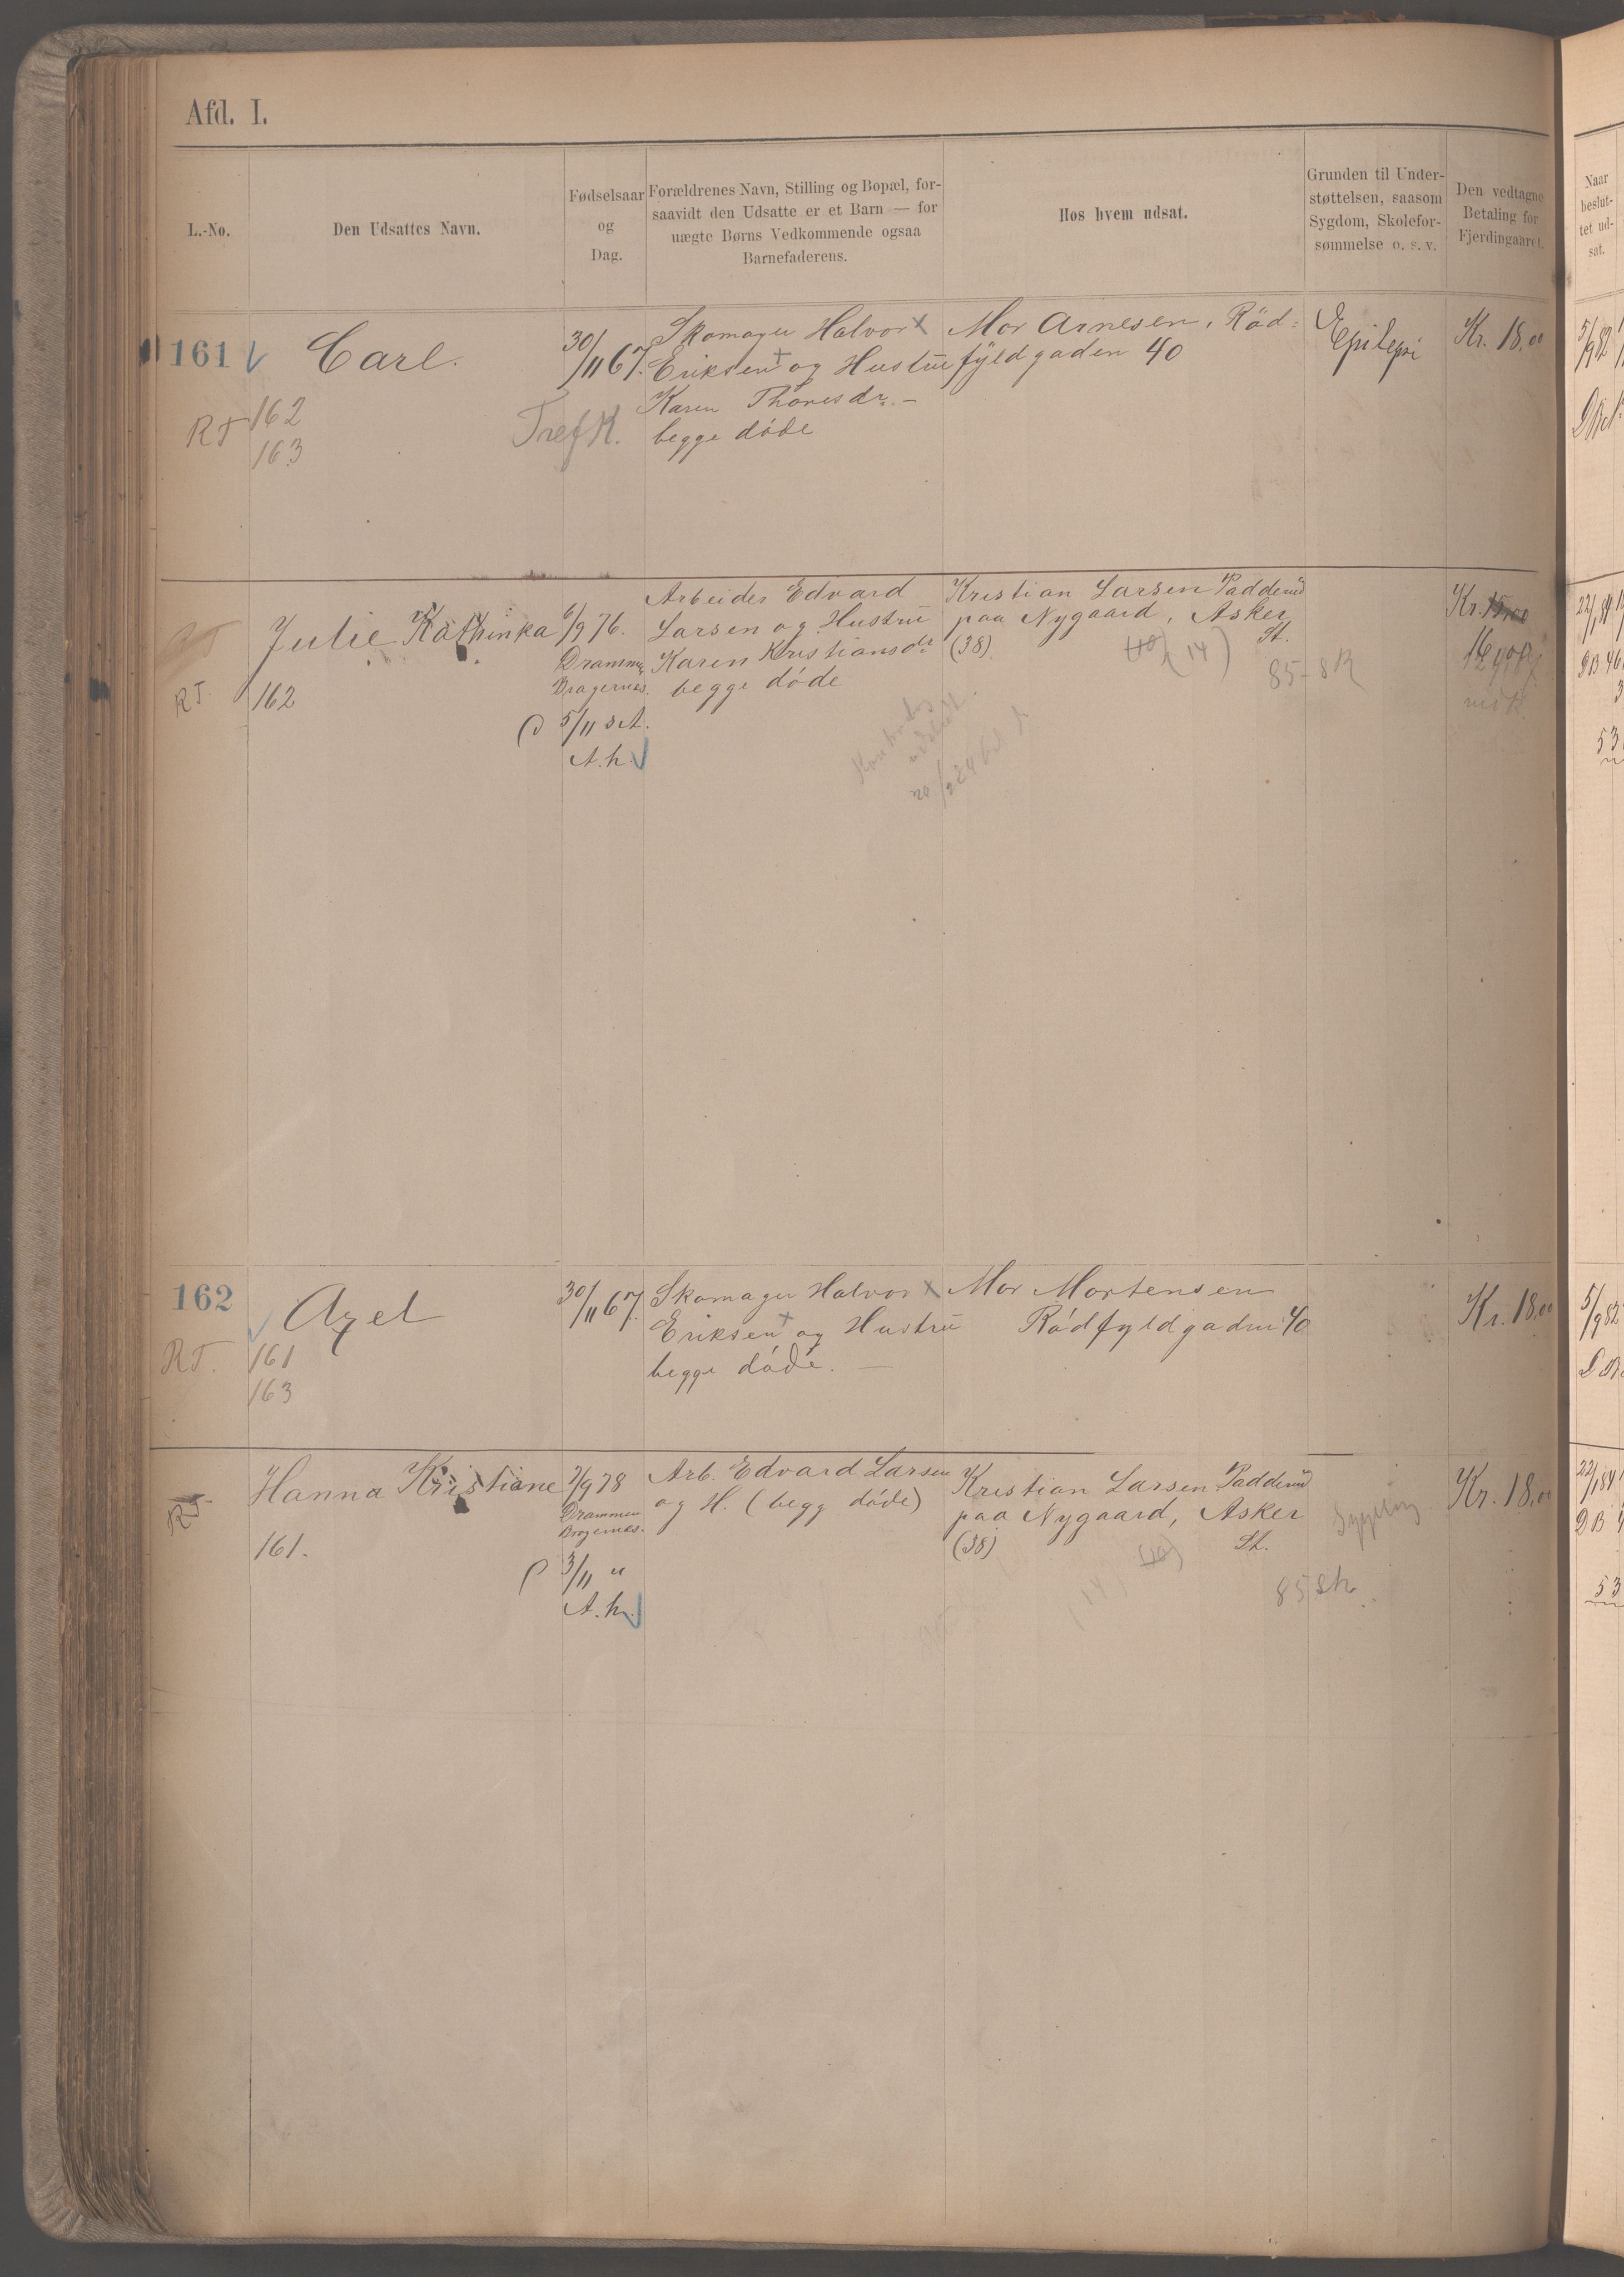 Afd. I.
L.-No.
Den Udsattes Navn.
Fødselsaar
og
Dag.
Forældrenes Navn, Stilling og Bopæl, for-
saavidt den Udsatte er et Barn — for
uægte Børns Vedkommende ogsaa
Barnefaderens.
Hos hvem udsat.
Grunden til Under-
støttelsen, saasom
Sygdom, Skolefor-
sømmelse o. s. v.
Den vedtagne
Betaling for
Fjerdingaaret.
Naar
beslut-
tet ud-
sat.
161
Carl.
30/11 67.
Skomager Halvor
Eriksen og Hustru
Karen Thoresdr. -
begge döde
Mor Arnesen, Röd-
fyldgaden 40
Epilepsi
Kr. 18,00
5/9 82
RT
162
163
Julie Kathinka
6/9 76.
Drammen
Bragernes.
5/11
A.h.
Arbeider Edvard
Larsen og Hustru
Karen Kristiansdr
begge döde
Kristian Larsen Padderud
paa Nygaard, Asker
(38)
St.
(14)
85
Kr. 15,00
RT.
162
22/1 84
53
162
Axel
30/11 67.
Skomager Halvor
Eriksen og Hustru
begge döde. —
Mor Mortensen
Rödfyldgaden 40
Kr. 18,00
5/9 82
RT.
161
163
Hanna Kristiane
7/9 78
Drammen
Bragernes.
3/11 "
A.h.
Arb. Edvard Larsen
og H. (begg döde)
Kristian Larsen Padderud
paa Nygaard, Asker
(38)
St.
(14)
85
Kr. 18,00
RT.
161.
22/1 84
53